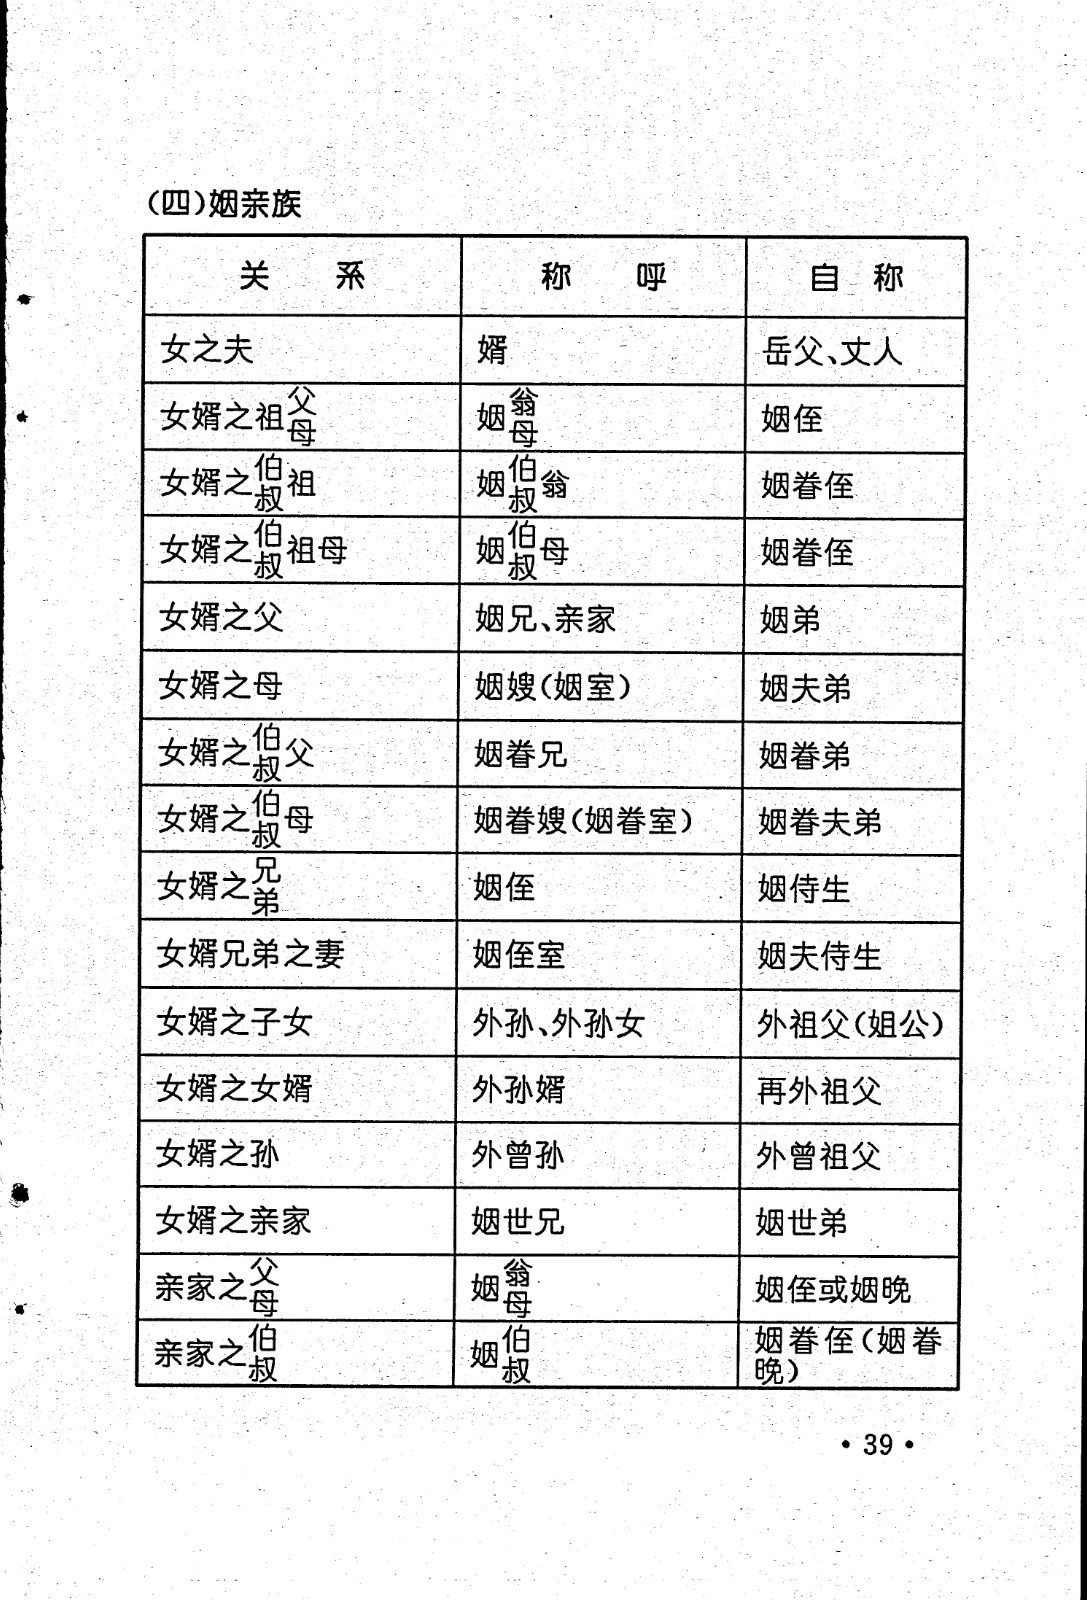 (四)姻亲族
关 系 称 呼 自 称
女之夫 婿 岳父、丈人
女婿之祖父母 姻翁母 姻侄
女婿之伯叔祖 姻伯叔翁 姻眷侄
女婿之伯叔祖母 姻伯叔母 姻眷侄
女婿之父 姻兄、亲家 姻弟
女婿之母 姻嫂(姻室) 姻夫弟
女婿之伯叔父 姻眷兄 姻眷弟
女婿之伯叔母 姻眷嫂(姻眷室) 姻眷夫弟
女婿之兄弟 姻侄 姻侍生
女婿兄弟之妻 姻侄室 姻夫侍生
女婿之子女 外孙、外孙女 外祖父(姐公)
女婿之女婿 外孙婿 再外祖父
女婿之孙 外曾孙 外曾祖父
女婿之亲家 姻世兄 姻世弟
亲家之父母 姻翁母 姻侄或姻晚
亲家之伯叔 姻伯叔 姻眷侄(姻眷
晚)
·39·